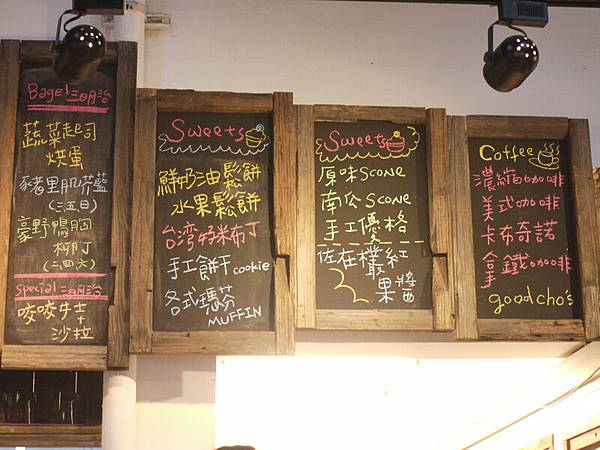 Bagel 三明治
蔬菜起司
烘蛋
豬里肌芥藍
(三五日)
豪野鴨胸
柳丁
(二四六)
special 三明治
咬咬牛士
沙拉
Sweets
鮮奶油鬆餅
水果鬆餅
台湾好米布丁
手工餅干 cookie
各式瑪芬
MUFFIN
Sweets
原味 Scone
南瓜 Scone
手工優格
佐在欉紅
果醬
Coffee
濃縮咖啡
美式咖啡
卡布奇諾
拿鐵咖啡
good cho's